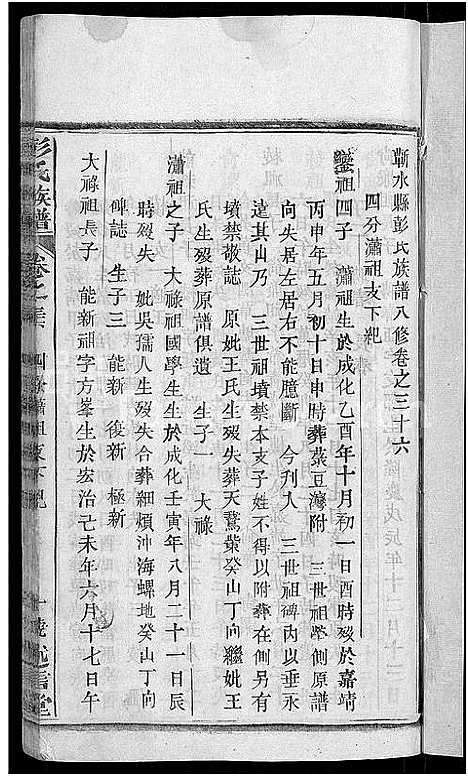 蘄水縣彭氏族譜八修卷之三十六
四分瀟祖支下紀
鑾祖四子 瀟祖生於成化乙酉年十月初一日酉時歿於嘉靖
丙申年五月初十日申時葬菉豆灣附 三世祖塋側原譜
向失居左居右不能臆斷 今刋入 三世祖碑內以垂永
遠其山乃 三世祖墳禁本支子姓不得以附葬在側另有
墳禁敬誌 原妣王氏生歿失葬天鵞巢癸山丁向繼妣王
氏生歿葬原譜俱遺 生子一 大祿
瀟祖之子 大祿祖國學生生於成化壬寅年八月二十一日辰
時歿失 妣吳孺人生歿失合葬細煩沖海螺地癸山丁向
碑誌 生子三 能新 復新 極新
大祿祖長子 能新祖字方峯生於宏治己未年六月十七日午
彭氏族譜 卷之三六 四分瀟祖支下紀 一 述信堂